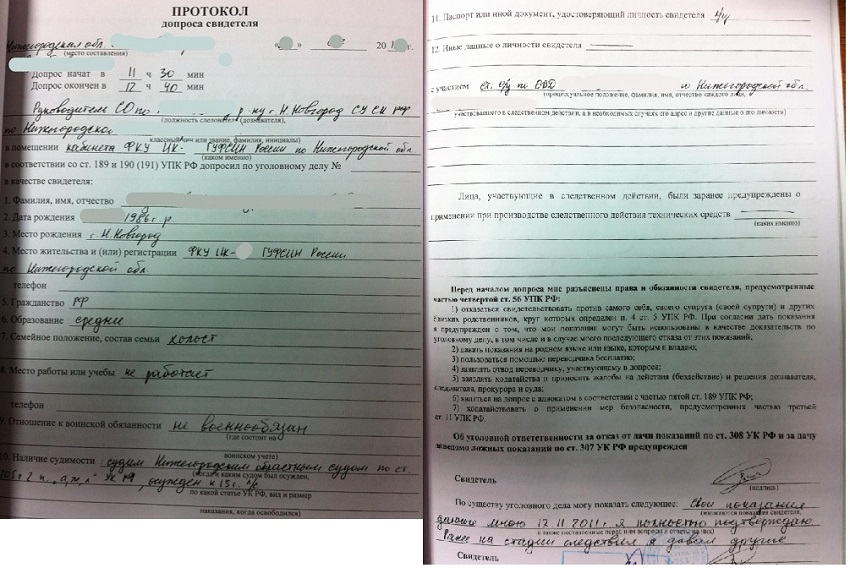 ПРОТОКОЛ
допроса свидетеля
Нижегородская обл.
(место составления)
« » 20 г.
Допрос начат в 11 ч 30 мин
Допрос окончен в 12 ч 40 мин
Руководитель СО по р-ну г. Н. Новгород СУ СК РФ
(должность следователя (дознавателя),
по Нижегородской
классный чин или звание, фамилия, инициалы)
в помещении кабинета ФКУ ИК- ГУФСИН России по Нижегородской обл.
(каком именно)
в соответствии со ст. 189 и 190 (191) УПК РФ допросил по уголовному делу №
в качестве свидетеля:
1. Фамилия, имя, отчество
2. Дата рождения 1986 г.р.
3. Место рождения г. Н. Новгород
4. Место жительства и (или) регистрации ФКУ ИК- ГУФСИН России
по Нижегородской обл.
телефон
5. Гражданство РФ
6. Образование средне
7. Семейное положение, состав семьи холост
8. Место работы или учебы не работает
телефон
9. Отношение к воинской обязанности не военнообязан
(где состоит на
воинском учете)
10. Наличие судимости судим Нижегородским областным судом по ст.
(когда и каким судом был осужден,
105 ч 2 п. УК РФ, осужден к 15 г.
по какой статье УК РФ, вид и размер
наказания, когда освободился)
11. Паспорт или иной документ, удостоверяющий личность свидетеля
12. Иные данные о личности свидетеля
с участием ст. о/у по ОВД Нижегородской обл.
(процессуальное положение, фамилия, имя, отчество каждого лица,
участвовавшего в следственном действии, а в необходимых случаях его адрес и другие данные о его личности)
Лица, участвующие в следственном действии, были заранее предупреждены о
применении при производстве следственного действия технических средств
(каких именно)
Перед началом допроса мне разъяснены права и обязанности свидетеля, предусмотренные
частью четвертой ст. 56 УПК РФ:
1) отказаться свидетельствовать против самого себя, своего супруга (своей супруги) и других
близких родственников, круг которых определен п. 4 ст. 5 УПК РФ. При согласии дать показания
я предупрежден о том, что мои показания могут быть использованы в качестве доказательств по
уголовному делу, в том числе и в случае моего последующего отказа от этих показаний;
2) давать показания на родном языке или языке, которым я владею;
3) пользоваться помощью переводчика бесплатно;
4) заявлять отвод переводчику, участвующему в допросе;
5) заявлять ходатайства и приносить жалобы на действия (бездействие) и решения дознавателя,
следователя, прокурора и суда;
6) являться на допрос с адвокатом в соответствии с частью пятой ст. 189 УПК РФ;
7) ходатайствовать о применении мер безопасности, предусмотренных частью третьей
ст. 11 УПК РФ.
Об уголовной ответственности за отказ от дачи показаний по ст. 308 УК РФ и за дачу
заведомо ложных показаний по ст. 307 УК РФ предупрежден
Свидетель
(подпись)
По существу уголовного дела могу показать следующее: Свои показания
(излагаются показания свидетеля,
данные мною 12.11.2011 г. я полностью подтверждаю
а также поставленные перед ним вопросы и ответы на них)
Ранее на стадии следствия я давал другие
Свидетель